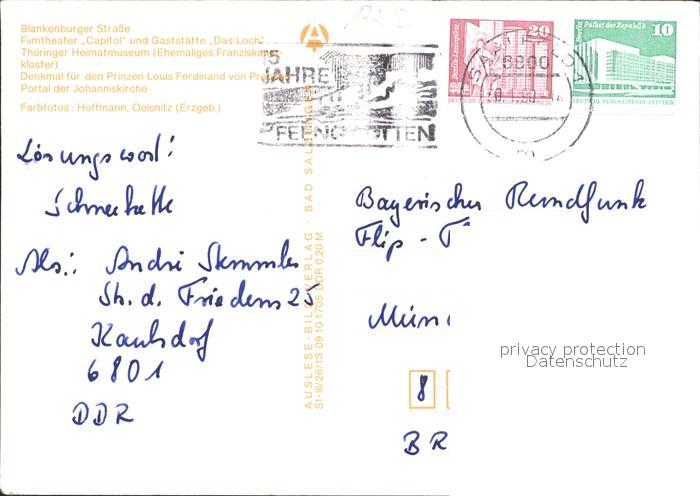 Blankenburger Straße
Filmtheater „Capitol" und Gaststätte „Das Loch"
Thüringer Heimatmuseum (Ehemaliges Franziskaner-
kloster)
Denkmal für den Prinzen Louis Ferdinand von Preußen
Portal der Johanniskirche
Farbfotos: Hoffmann, Oelsnitz (Erzgeb.)
75
JAHRE
FEENGROTTEN
Berlin-Leninplatz
20
DEUTSCHE DEMOKRATISCHE REPUBLIK
Berlin Palast der Republik
10
DEUTSCHE DEMOKRATISCHE REPUBLIK
6800
Lösungswort:
Schneekette
Abs.: André Stemmler
Str. d. Friedens 25
Kaulsdorf
6801
DDR
AUSLESE-BILD-VERLAG · BAD SALZUNGEN
S1-III/26/13 09 10 1705 DDR 0,20 M
Bayerischer Rundfunk
Flip -
Münc
8
BR
privacy protection
Datenschutz